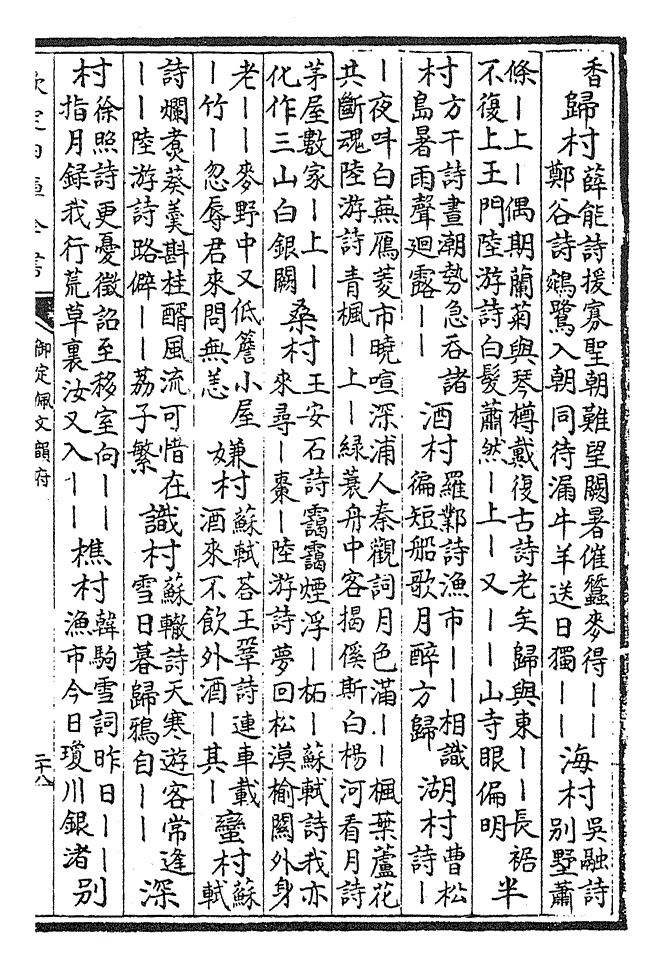 香
歸村 薛能詩援寡聖朝難望闕暑催蠶麥得——
鄭谷詩鵷鷺入朝同待漏牛羊送日獨——
海村 吳融詩
別墅蕭
條—上—偶期蘭菊與琴樽戴復古詩老矣歸與東——長裾
不復上王門陸游詩白髮蕭然—上—又——山寺眼偏明
半
村 方干詩晝潮勢急吞諸
島暑雨聲廻露——
酒村 羅鄴詩漁市——相識
徧短船歌月醉方歸
湖村 曹松
詩—
—夜呌白蕪鴈菱市曉喧深浦人秦觀詞月色滿——楓葉蘆花
共斷魂陸游詩青楓—上—綠蓑舟中客揭傒斯白楊河看月詩
茅屋數家—上——
化作三山白銀闕
桑村 王安石詩靄靄煙浮—柘—蘇軾詩我亦
來尋—棗—陸游詩夢回松漠榆關外身
老——麥野中又低簷小屋
—竹—忽辱君來問無恙
嫌村 蘇軾荅王鞏詩連車載
酒來不飲外酒—其—
蠻村 蘇
軾
詩爛煑葵羹斟桂醑風流可惜在
——陸游詩路僻——荔子繁
識村 蘇轍詩天寒遊客常逢
雪日暮歸鴉自——
深
村 徐照詩更憂徵詔至移室向——
指月録我行荒草裏汝又入——
樵村 韓駒雪詞昨日——
漁市今日瓊川銀渚
別
欽定四庫全書
御定佩文韻府
二十八